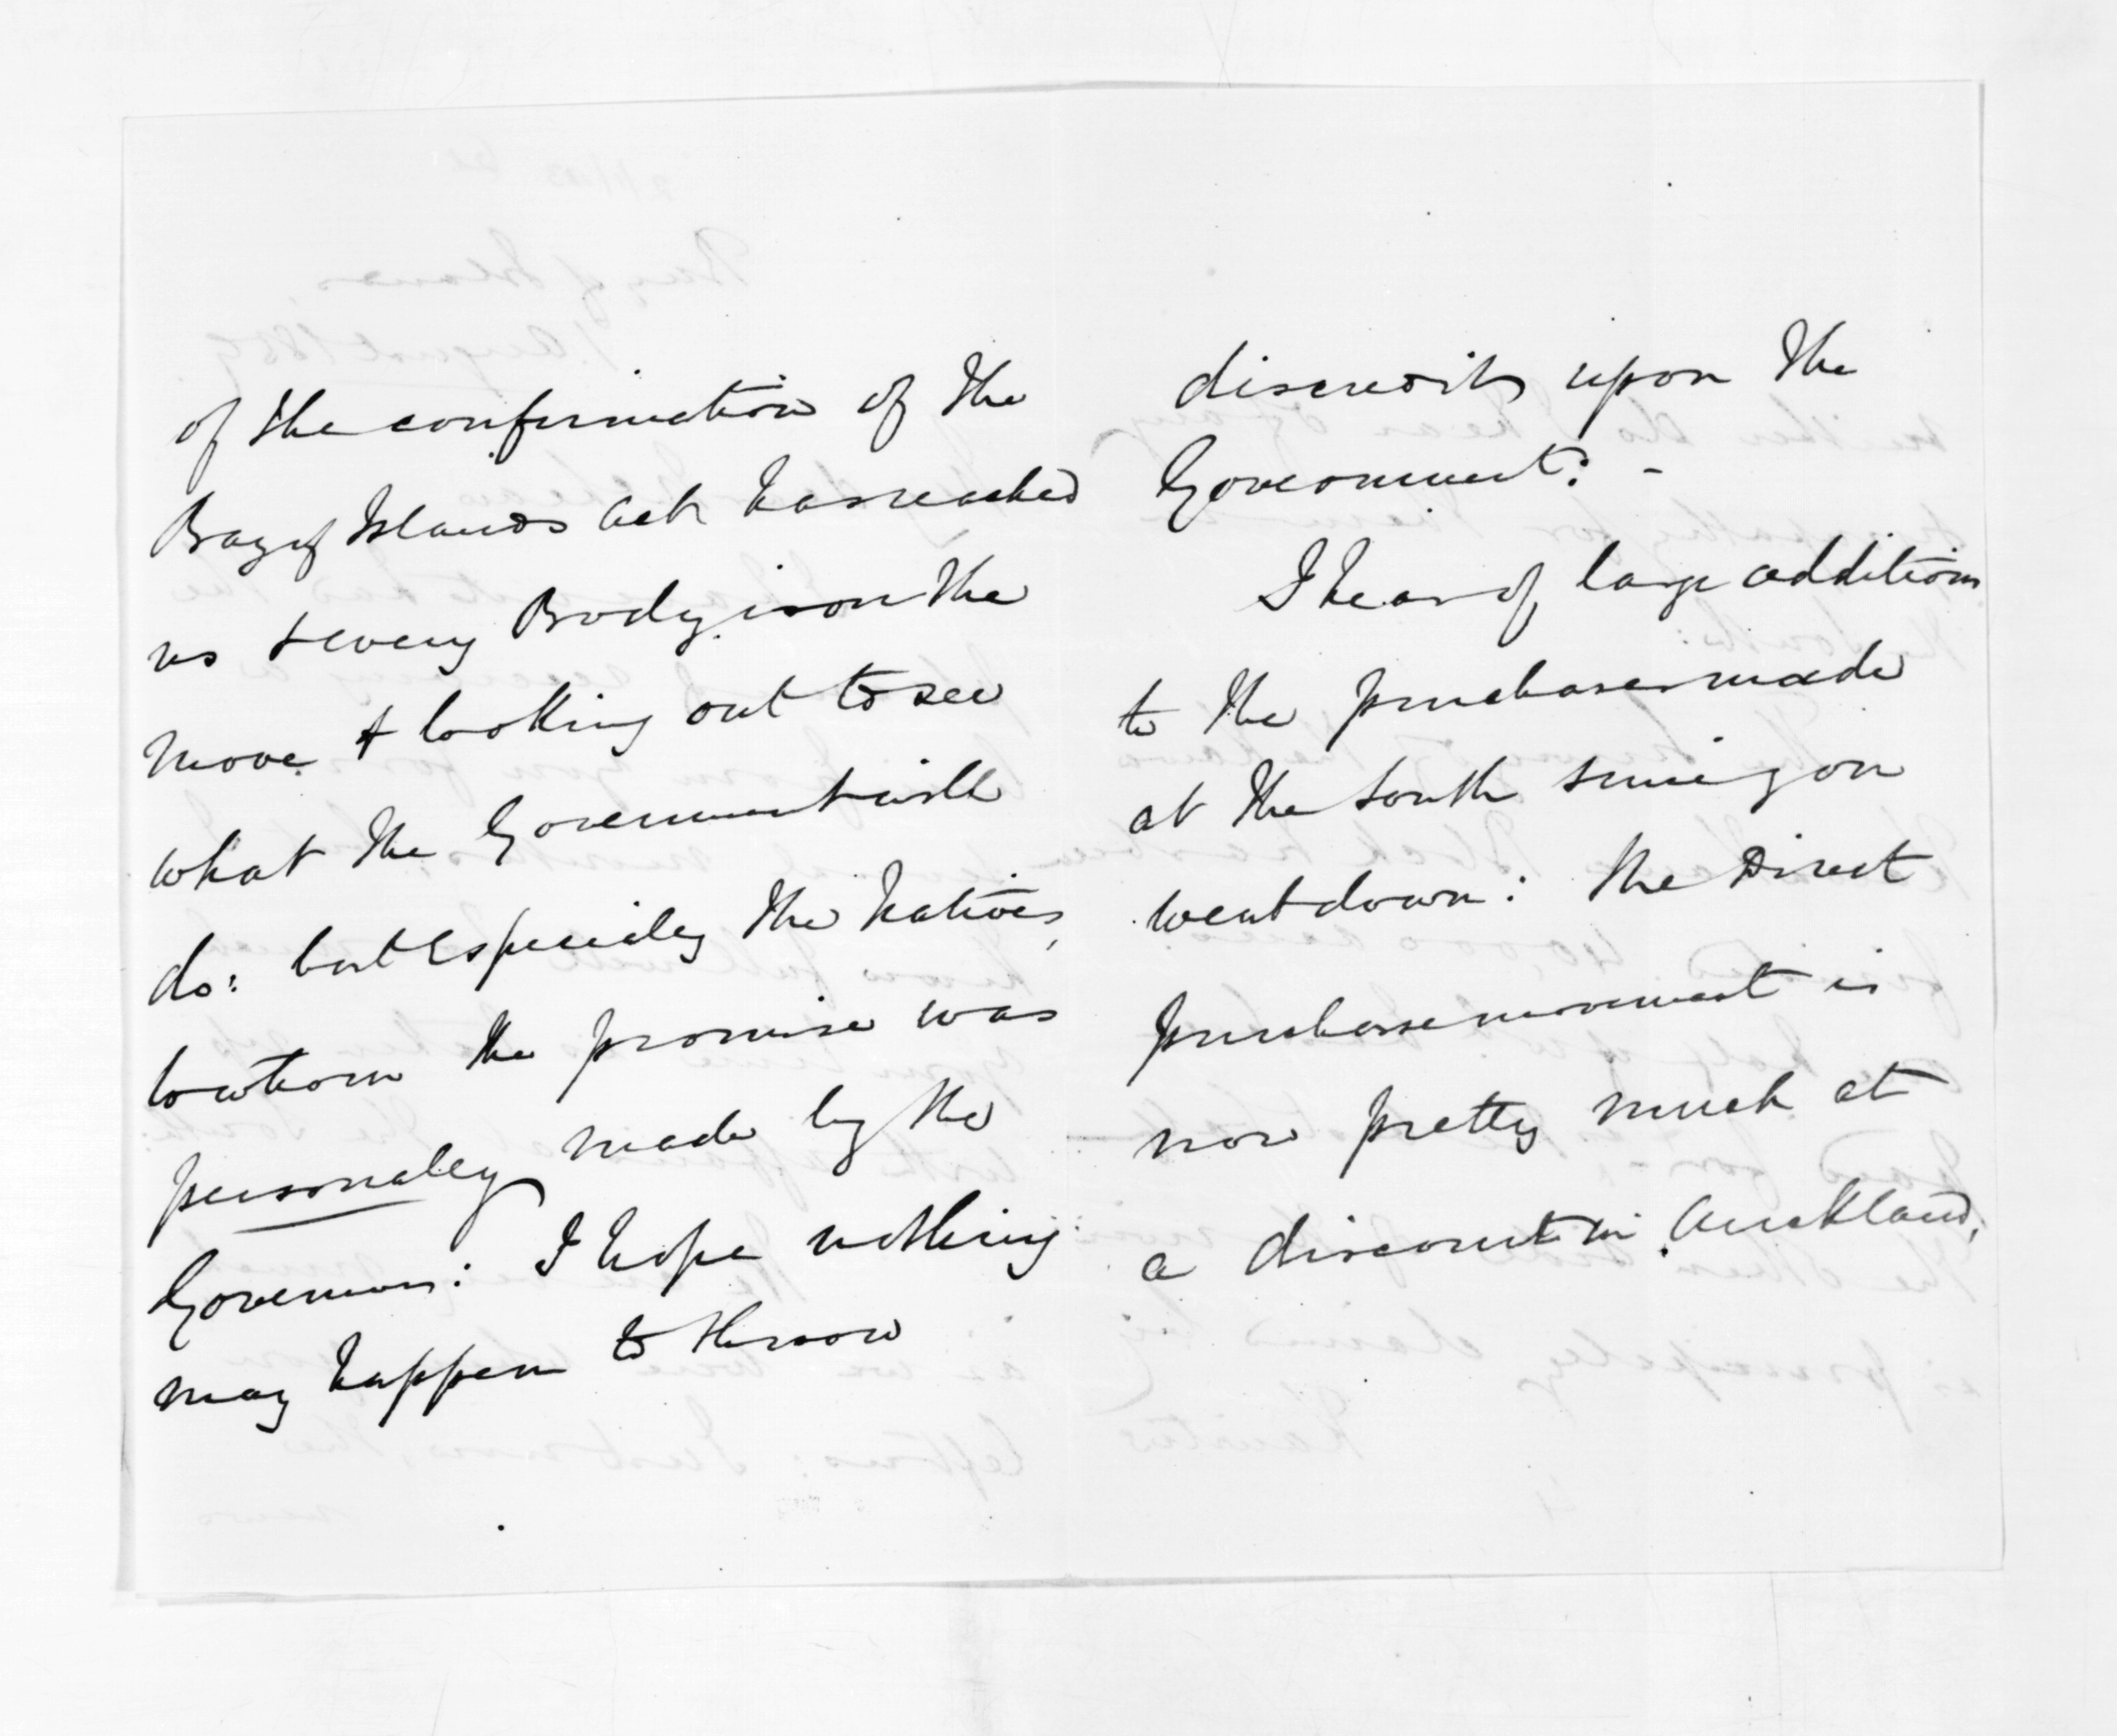 of the confirmation of the
Bay of Islands Act has reached
us & every Body is on the
move & looking out to see
what the Government will
do: but Especially the Natives,
to whom the promise was
personally made by the
Governor: I hope nothing
may happen to throw
discredit upon the
Government: -
I hear of large additions
to the purchases made
at the South since you
went down: the Direct
purchase movement is
now pretty much at
a discount in Auckland,